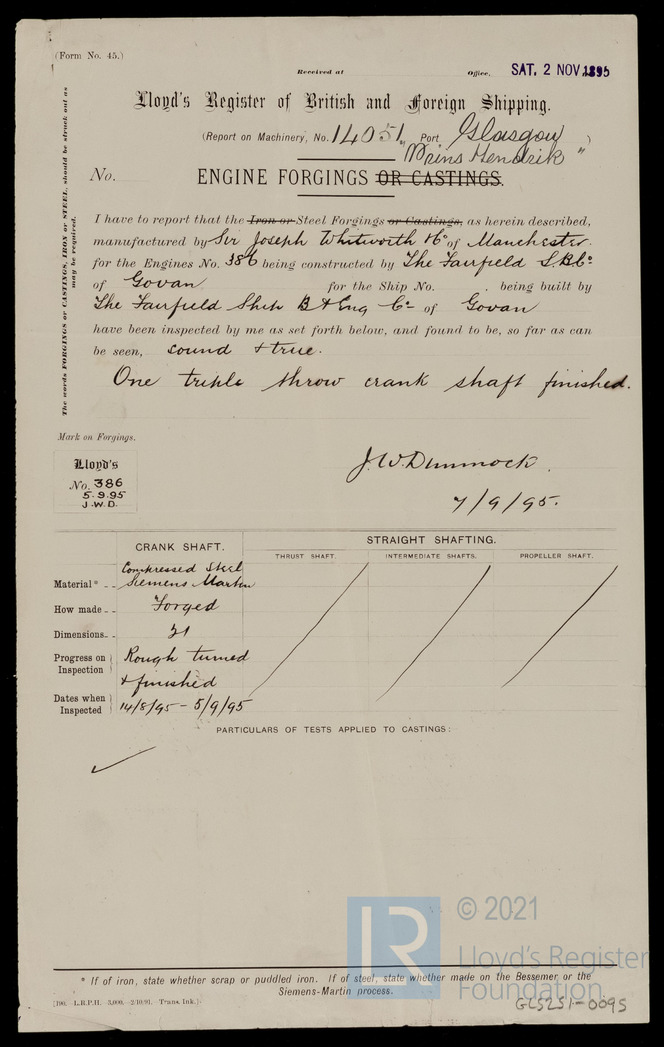 (Form No. 45.)
Received at Office, SAT. 2 NOV 1895
Lloyd's Register of British and Foreign Shipping.
(Report on Machinery, No. 14051, Port Glasgow)
"Prins Hendrik"
No. ENGINE FORGINGS OR CASTINGS.
The words FORGINGS or CASTINGS, IRON or STEEL, should be struck out as may be required.
I have to report that the Iron or Steel Forgings or Castings, as herein described,
manufactured by Sir Joseph Whitworth & Co of Manchester.
for the Engines No. 386 being constructed by The Fairfield S.B.Co.
of Govan for the Ship No. being built by
The Fairfield Ship B & Eng Co of Govan
have been inspected by me as set forth below, and found to be, so far as can
be seen, sound & true.
One triple throw crank shaft finished.
Mark on Forgings.
Lloyd's
No. 386
5.9.95
J.W.D.
J.W. Dimmock.
7/9/95.
CRANK SHAFT. STRAIGHT SHAFTING.
THRUST SHAFT. INTERMEDIATE SHAFTS. PROPELLER SHAFT.
Material* Compressed Steel
Siemens Martin
How made Forged
Dimensions
Progress on Inspection Rough turned
& finished
Dates when Inspected 14/8/95 - 5/9/95
PARTICULARS OF TESTS APPLIED TO CASTINGS:
* If of iron, state whether scrap or puddled iron. If of steel, state whether made on the Bessemer or the
Siemens-Martin process.
[190. -L.R.P.H. -3,000. -2/10/91. -Trans. Ink.]
GLS251-0095
LR © 2021
Lloyd's Register
Foundation